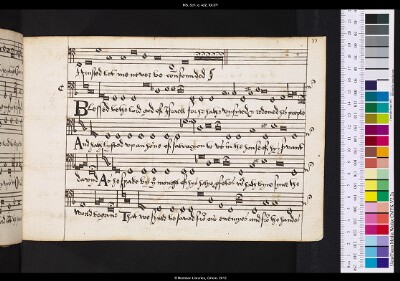 trusted let me never be confounded
Blessed be the lord god of Israell for he hath visited & redemed his people
And hath lyghted up an horne of salvacyon to us in the house of his servant
david As he spake by the mouth of his holy prophets which hath byne sins the
world began That we shuld be saved from our enemyes and from the hands